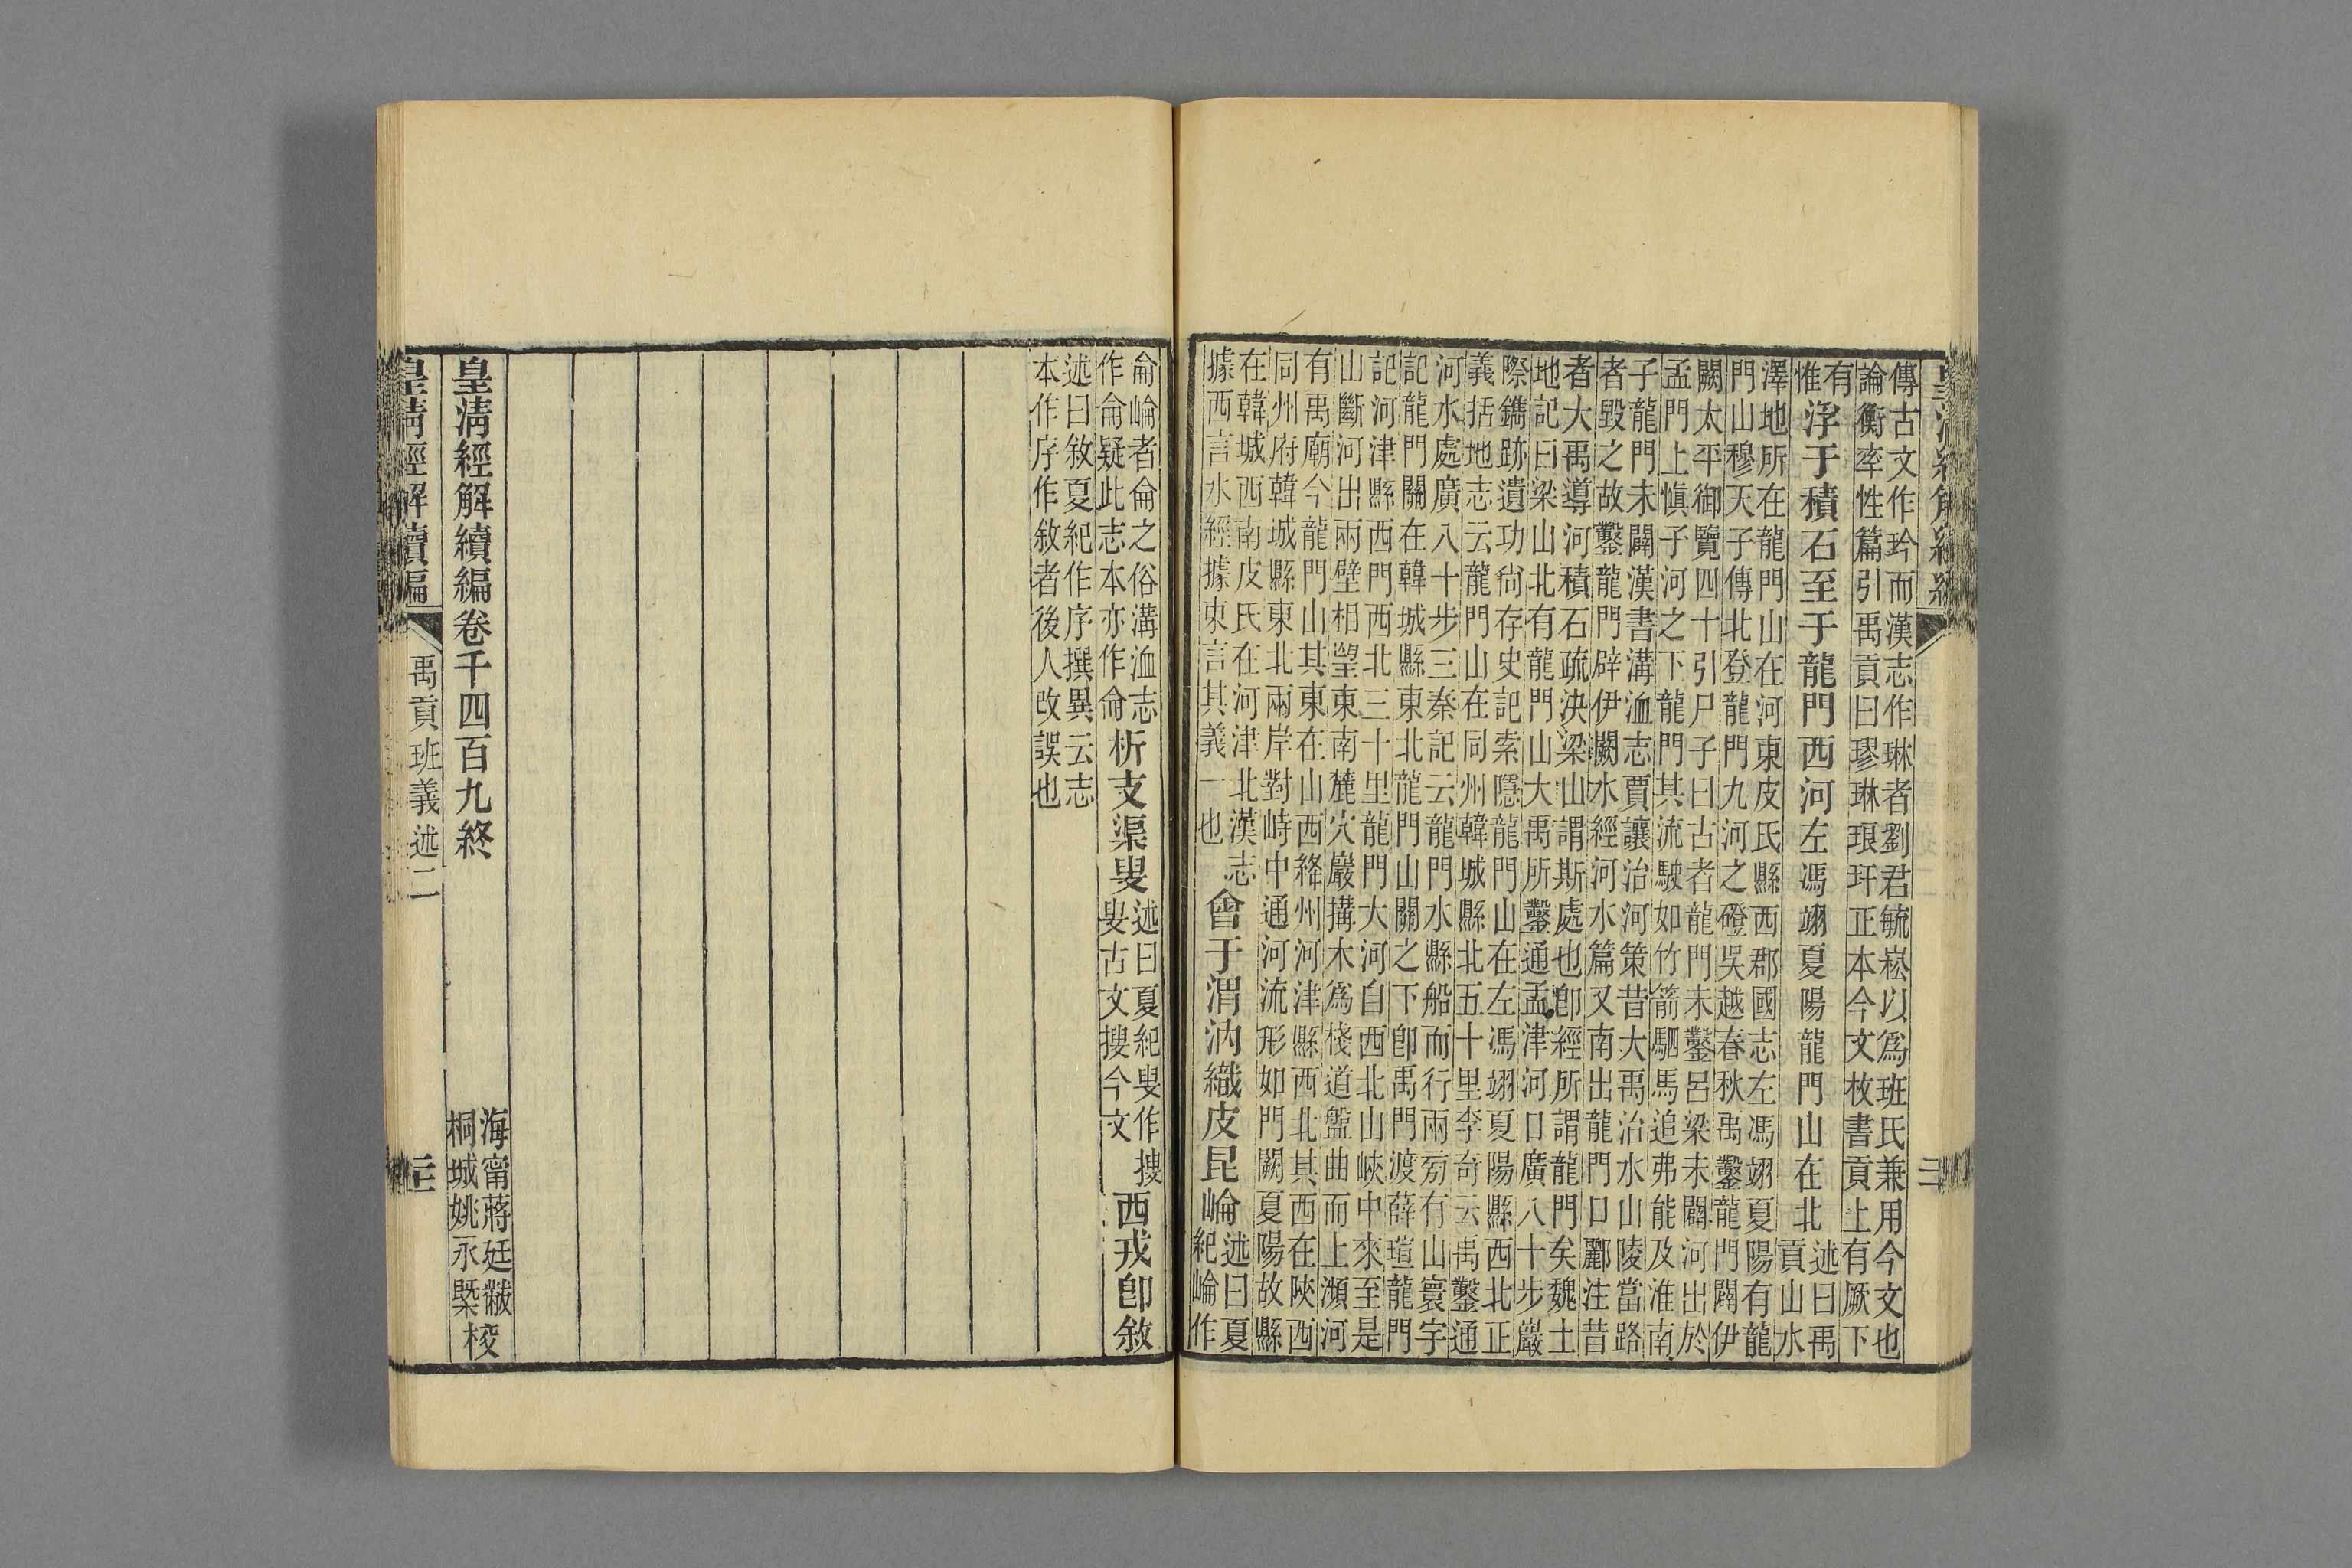 傳古文作玲而漢志作琳者劉君毓崧以為班氏兼用今文也
論衡率性篇引禹貢曰璆琳琅玕正本今文枚書貢上有厥下
有惟浮于積石至于龍門西河左馮翊夏陽龍門山在北述曰禹貢山水
澤地所在龍門山在河東皮氏縣西郡國志左馮翊夏陽有龍
門山穆天子傳北登龍門九河之磴吳越春秋禹鑿龍門闢伊
闕太平御覽四十引尸子曰古者龍門未鑿呂梁未闢河出於
孟門上愼子河之下龍門其流駛如竹箭駟馬追弗能及淮南
子龍門未闢漢書溝洫志賈讓治河策昔大禹治水山陵當路
者毀之故鑿龍門辟伊闕水經河水篇又南出龍門口酈注昔
者大禹導河積石疏決梁山謂斯處也卽經所謂龍門矣魏土
地記曰梁山北有龍門山大禹所鑿通孟津河口廣八十步巖
際鐫跡遺功尙存史記索隱龍門山在左馮翊夏陽縣西北正
義括地志云龍門山在同州韓城縣北五十里李奇云禹鑿通
河水處廣八十步三秦記云龍門水縣船而行兩旁有山寰宇
記龍門關在韓城縣東北龍門山關之下卽禹門渡薛瑄龍門
記河津縣西門西北三十里龍門大河自西北山峽中來至是
山斷河出兩壁相望東南麓穴巖搆木爲棧道盤曲而上瀕河
有禹廟今龍門山其東在山西絳州河津縣西北其西在陝西
同州府韓城縣東北兩岸對峙中通河流形如門闕夏陽故縣
在韓城西南皮氏在河津北漢志
據西言水經據東言其義一也會于渭汭織皮昆崘述曰夏紀崘作
侖崘者侖之俗溝洫志
作侖疑此志本亦作侖析支渠叟述曰夏紀叟作搜叟古文搜今文西戎卽敘
述曰敘夏紀作序撰異云志
本作序作敘者後人改誤也
皇清經解續編卷千四百九終
海甯蔣廷黻
桐城姚永槩校
皇清經解續編 禹貢班義述二